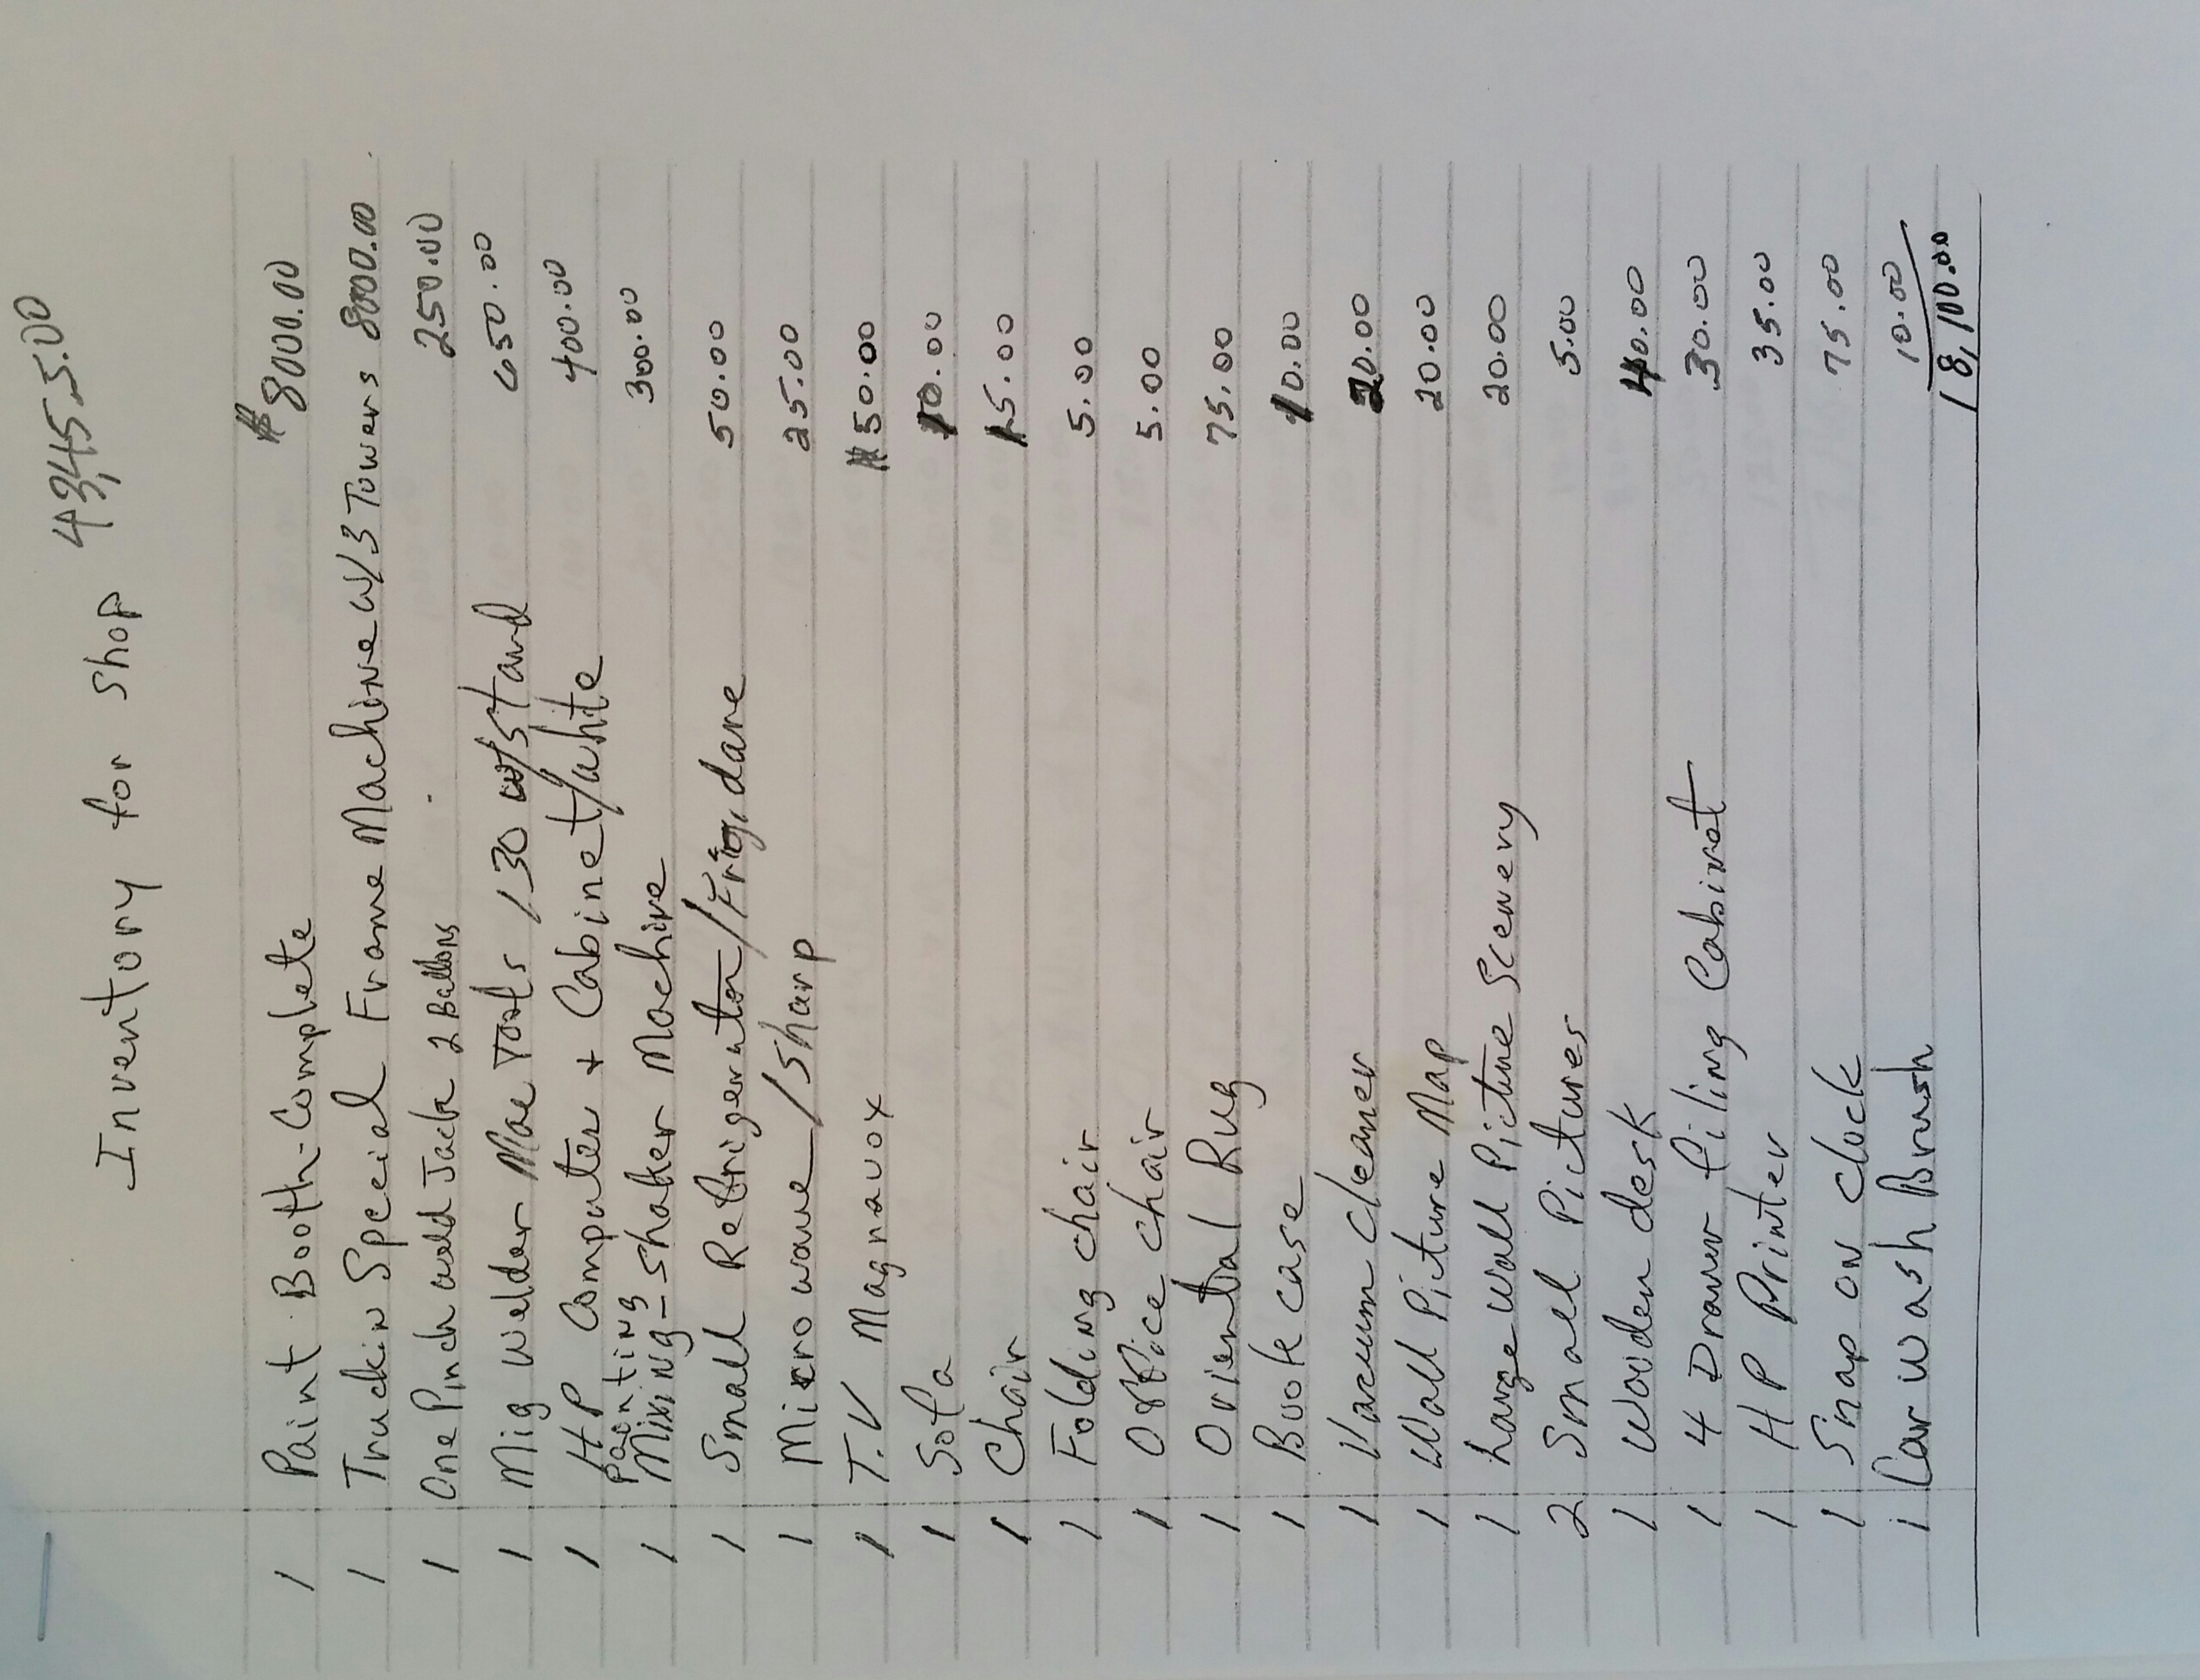 Inventory for shop 43,455.00
1 Paint Booth-Complete $8000.00
1 Truckin Special Frame Machine w/3 Towers 8000.00
1 One Pinch weld Jack 2 Ballons 250.00
1 Mig welder Mac Tools /130 w/stand 650.00
1 HP Computer + Cabinet/white 400.00
Painting
1 Mixing-shaker Machine 300.00
1 Small Refrigerator/Frigidare 50.00
1 Microwave/Sharp 25.00
1 T.V Magnavox 50.00
1 Sofa 10.00
1 Chair 15.00
1 Folding chair 5.00
1 Office chair 5.00
1 Oriental Rug 75.00
1 Book case 10.00
1 Vacuum cleaner 20.00
1 Wall Picture Map 20.00
1 Large wall Picture Scenery 20.00
2 Small Pictures 5.00
1 wooden desk 40.00
1 4 Drawer filing Cabinet 30.00
1 HP Printer 35.00
1 Snap on clock 75.00
1 Car wash Brush 10.00
18,100.00